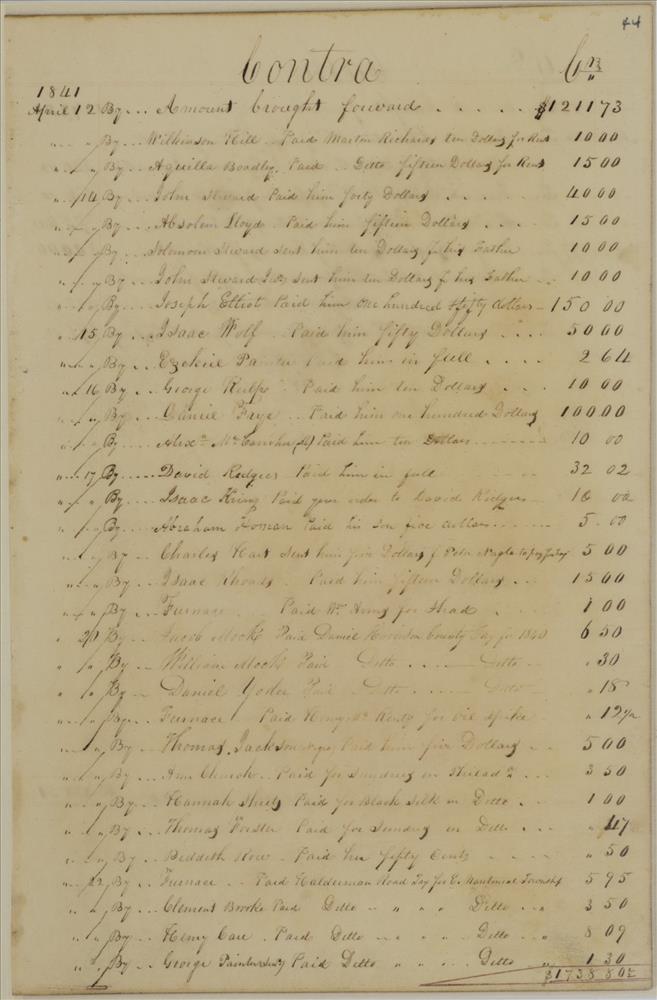 44
Contra Cr
1841
April 12 By Amount brought forward $1211 73
" " By Wilkinson Hill Paid Martin Richards ten Dollars for Rent 10 00
" " By Aquilla Boadley Paid Ditto fifteen Dollars for Rent 15 00
" 14 By John Steward Paid him forty Dollars 40 00
" " By Absolem Lloyd Paid him fifteen Dollars 15 00
" " By Solomon Steward sent him ten Dollars for his Father 10 00
" " By John Steward sent him ten Dollars for his Father 10 00
" " By Joseph Elliot Paid him One hundred & fifty dollars 150 00
" 15 By Isaac Wolf Paid him fifty Dollars 50 00
" " By Ezekiel Painter Paid him in full 2 64
" 16 By George Paid him ten Dollars 10 00
" " By Daniel Frye Paid him one hundred Dollars 100 00
" " By Alexr Paid him ten Dollars 10 00
" 17 By David Rodgers Paid him in full 32 02
" " By Isaac King Paid your order to David Rodgers 00
" " By Abraham Homan Paid his son five dollars 5.00
" " By Charles Hart sent him five Dollars Peter Nagle to pay 5 00
" " By Isaac Rhoads Paid him fifteen Dollars 15 00
" " By Furnace Paid Wm for Head 1 00
" By Jacob Mock Paid Daniel County Tax for 1840 6 50
" " By William Mock Paid Ditto Ditto " 30
" " By Daniel Yoder Paid Ditto Ditto " 18
" " By Furnace Paid Henry for oil spike " 12½
" " By Thomas Jackson Paid him five Dollars 5 00
" " By Ann Church Paid for Sundries in Philada 3 50
" " By Hannah Paid for Black Silk in Ditto 1 00
" " By Thomas Forster Paid for Sundry in Ditto " 47
" " By Paid her fifty Cents " 50
" 22 By Furnace Paid Halderman Road Tax for Township 5 95
" " By Clement Brooke Paid Ditto " " " Ditto 3 50
" " By Henry Care Paid Ditto " " " Ditto 8 09
" " By George Painter Paid Ditto " " " Ditto " 1 30
$1738 80½